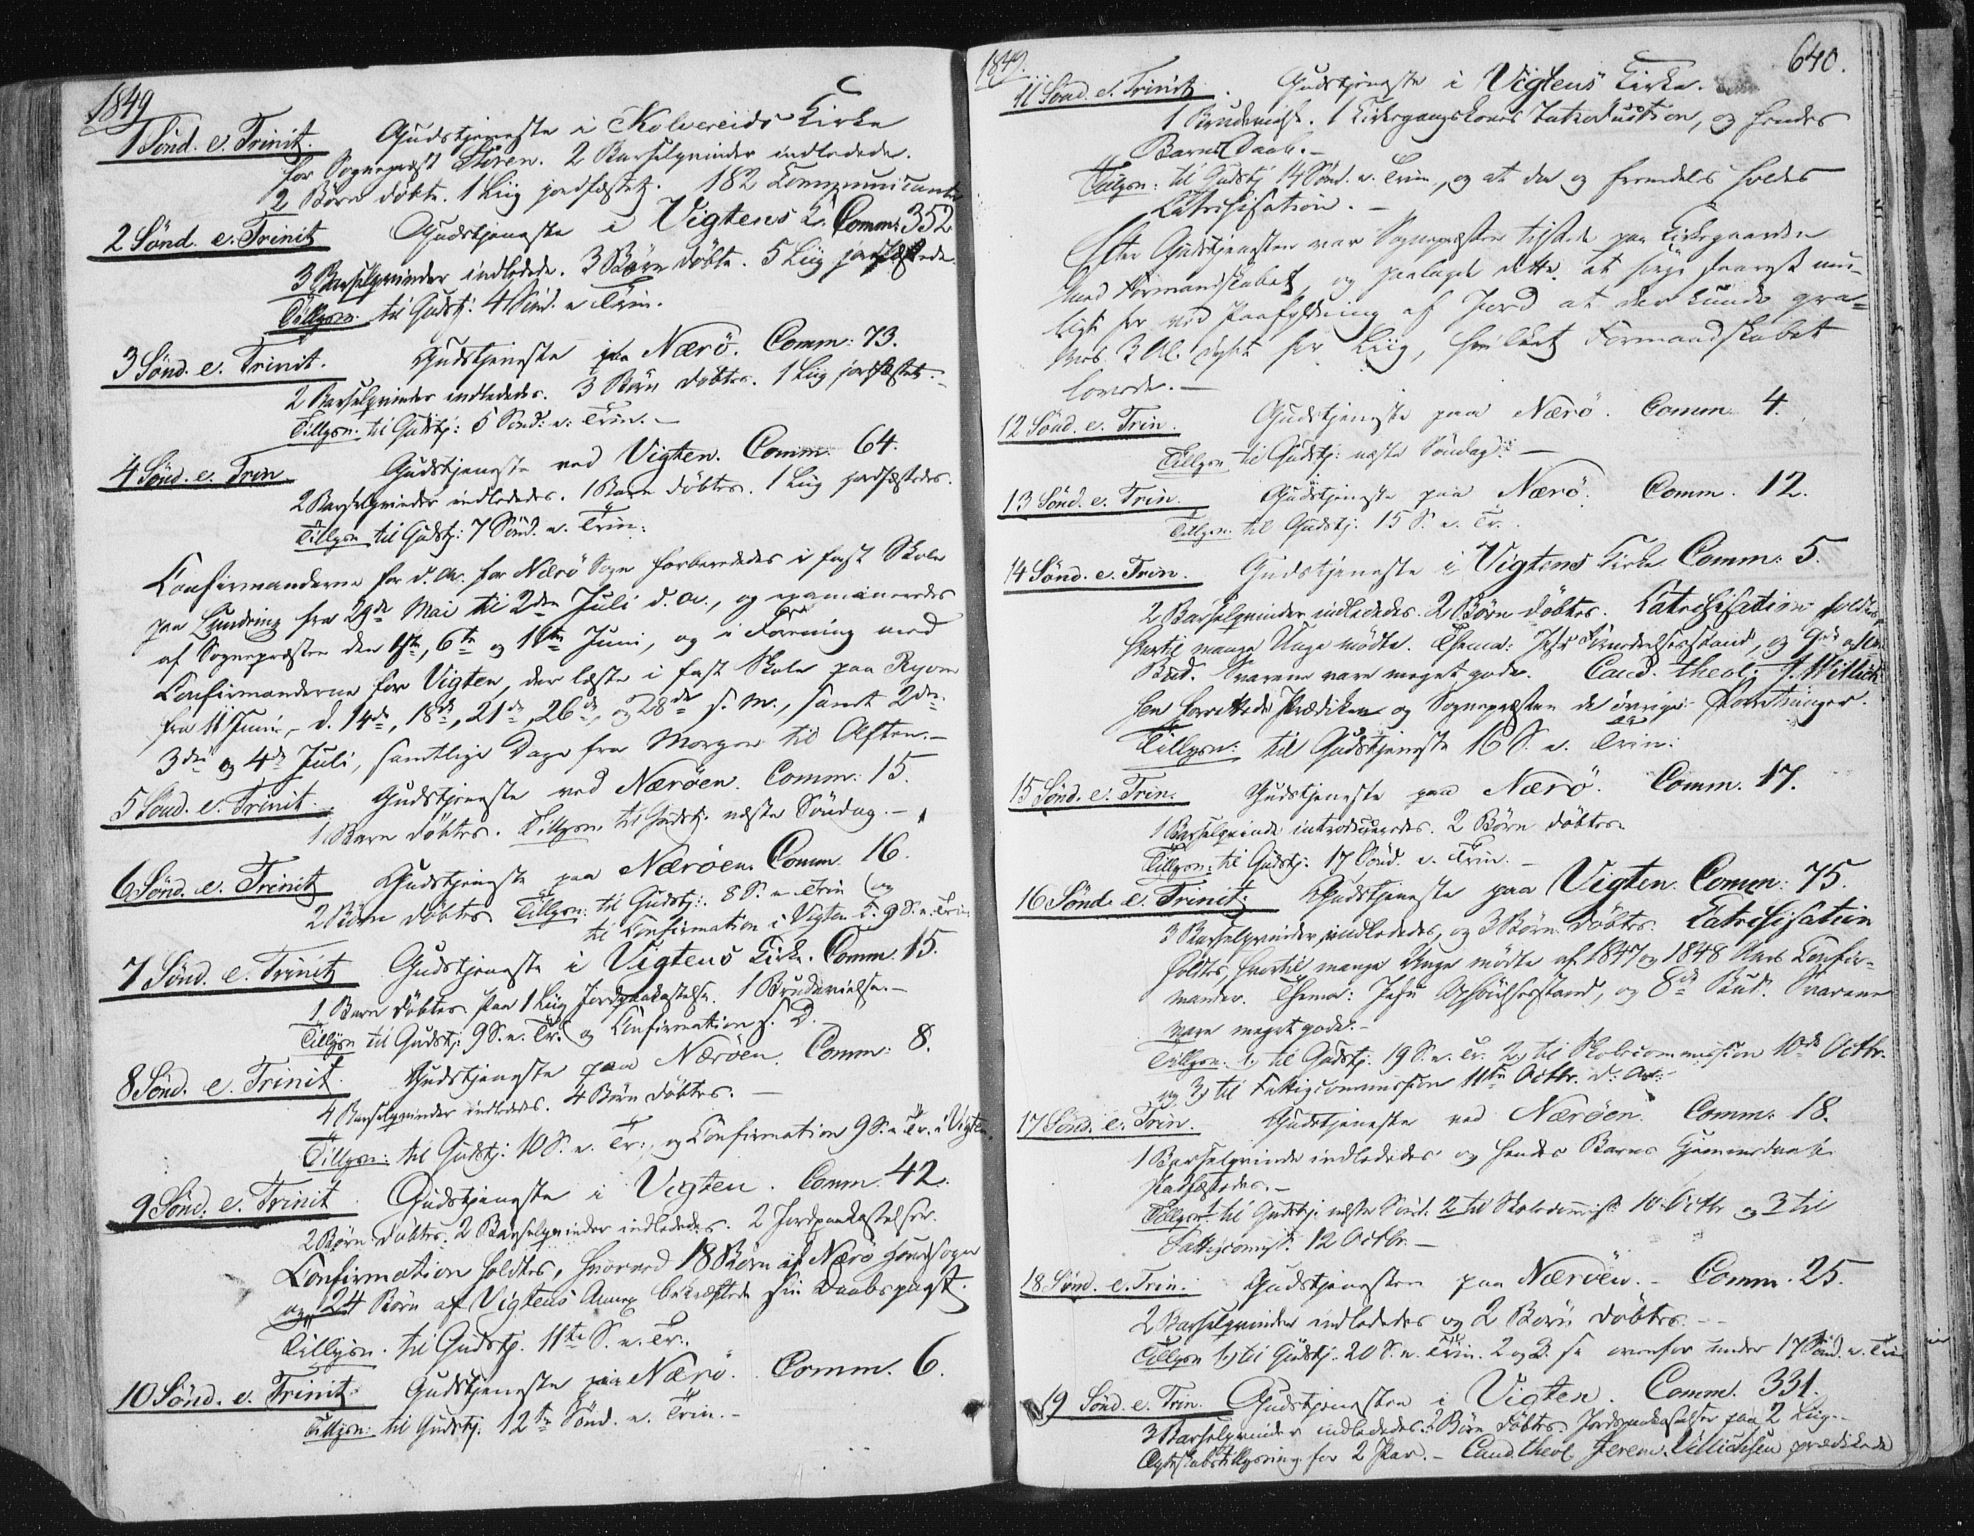 1849
1 Sönd. e. Trinit. Gudstjeneste i Kolvereids Kirke
for Sognepræst Stören. 2 Barselqvinder indledede.
2 Börn döbte. 1 Liig jordfæstet. 182 Communicanter
2 Sönd. e. Trinit Gudstjeneste i Vigtens K. Comm: 352
3 Barselqvinder indledede. 3 Börn döbte. 5 Liig jordfæstede.
Tillysn. til Gudstj: 4 Sönd. e. Trin.
3 Sönd. e. Trinit. Gudstjeneste paa Nærö. Comm: 73.
2 Barselqvinder indledede. 3 Börn döbtes. 1 Liig jordfæstet.
Tillysn. til Gudstj: 5 Sönd. e. Trin.
4 Sönd. e. Trin Gudstjeneste ved Vigten. Comm. 64.
2 Barselqvinder indledede. 1 Barn döbtes. 1 Liig jordfæstedes.
Tillysn til Gudstj: 7 Sönd. e. Trin:
Confirmanderne for d. A. for Nærö Sogn forberededes i fast Skole
paa Lundring fra 29de Mai til 2den Juli d. A., og examineredes
af Sognepræsten den 1ste, 6te og 11te Juni, og i Forening med
Confirmanderne for Vigten, der læste i fast Skole paa Ryom
fra 11 Juni, d. 14de, 18de, 21de, 26de, og 28de s. M., samt 2den
3die og 4de Juli, samtlige Dage fra Morgen til Aften.
5 Sönd. e. Trinit. Gudstjeneste ved Næröen. Comm: 15.
1 Barn döbtes. Tillysn. til Gudstj. næste Söndag.
6 Sönd. e. Trinit Gudstjeneste paa Næröen. Comm. 16.
2 Börn döbtes Tillysn: til Gudstj: 8 S. e. Trin (og
til Confirmation i Vigten K. 9 S. e. Trin
7 Sönd. e. Trinit Gudstjeneste i Vigtens Kirke. Comm. 15.
1 Barn döbtes paa 1 Liig Jordpaakastelse. 1 Brudevielse.
Tillysn til Gudstj: 9 S. e. Tr. og Confirmation s. D.
8 Sönd. e. Trinit. Gudstjeneste paa Næröen. Comm: 8.
4 Barselqvinder indledede. 4 Börn döbtes.
Tillysn: til Gudstj: 10 S. e. Tr:, og Confirmation 9 S. e. Tr. i Vigten.
9 Sönd. e. Trinit Gudstjeneste i Vigten. Comm. 42.
2 Börn döbtes. 2 Barselqvinder indledede. 2 Jordpaakastelser.
Confirmation holdtes, hvorved 18 Börn af Nærö Hovedsogn
og 24 Börn af Vigtens Annex bekræftede sin Daabspagt.
Tillysn. til Gudstj. 11te S. e. Tr.
10 Sönd. e. Trinit. Gudstjeneste paa Nærö. Comm. 6.
Tillysn: til Gudstj. 12te Sönd. e. Trin.
1849. 640.
11 Sönd. e. Trinit. Gudstjeneste i Vigtens Kirke.
1 Brudevielse. 1 Kirkegangskones Introduction, og hendes
Barns Daab.
Tillysn: til Gudstj. 14 Sönd. e. Trin, og at der og fremdeles holdes
Katechisation.
Efter Gudstjenesten var Sognepræsten tilstede paa Kirkegaarden
med Formandskabet, og paalagde dette at sörge snarest mu-
ligt for ved Paafyldning af Jord at der kunde gra-
ves 3 Al. dybt for Liig, hvilket Formandskabet
lovede.
12 Sönd. e. Trin. Gudstjeneste paa Nærö. Comm. 4.
Tillysn til Gudstj: næste Söndag.
13 Sönd. e. Trin. Gudstjeneste paa Nærö. Comm. 12.
Tillysn: til Gudstj. 15 S. e. Tr.
14 Sönd. e. Trin. Gudstjeneste i Vigtens Kirke Comm: 5.
2 Barselqvinder indledede. 2 Börn döbtes. Katechisation holdtes,
hvortil mange Unge mödte. Thema: Jesu Fornedrelsesstand, og 9de og 10de
Bud. Svarene vare meget gode. Cand. theol. J. Willich-
sen forrettede Prædiken og Sognepræsten de övrige Forretninger.
Tillysn: til Gudstjeneste 16 S. e. Trin:
15 Sönd. e. Trin. Gudstjeneste paa Nærö. Comm. 17.
1 Barselqvinde introduceredes. 2 Börn döbtes.
Tillysn: til Gudstj. 17 Sönd. e. Trin.
16 Sönd. e. Trinit: Gudstjeneste paa Vigten. Comm: 75.
3 Barselqvinder indledede, og 3 Börn döbtes. Katechisation
holdtes, hvortil mange Unge mödte af 1847 og 1848 Aars Confir-
mander. Thema: Jesu Ophöielsesstand, og 8de Bud. Svarene
vare meget gode.
Tillysn: 1, til Gudstj: 19 S. e. Tr. 2, til Skolecommission 10de Octbr.
og 3, til Fattigcommission 11te Octbr. d. A.
17 Sönd. e. Trin. Gudstjeneste ved Næröen. Comm: 18.
1 Barselqvinde indledede og hendes Barns Hjemmedaab
stadfæstedes.
Tillysn: til Gudstj. næste Sönd. 2 til Skolecommiss. 10 Octbr og 3 til
Fattigcomiss. 12 Octbr.
18 Sönd. e. Trin. Gudstjenesten paa Næröen. Comm. 25.
2 Barselqvinder indledede og 2 Börn döbtes.
Tillysn 1, til Gudstj. 20 S. e. Trin. 2 og 3. se ovenfor under 17 Sönd. e. Trin
19 Sönd. e. Trin. Gudstjenesten i Vigten. Comm. 331.
3 Barselqvinder indledede. 2 Börn döbtes. Jordpaakastelse paa 2 Liig.
Ægteskabstillysning for 2 Par. Cand. theol Jerem. Willichsen prædikede